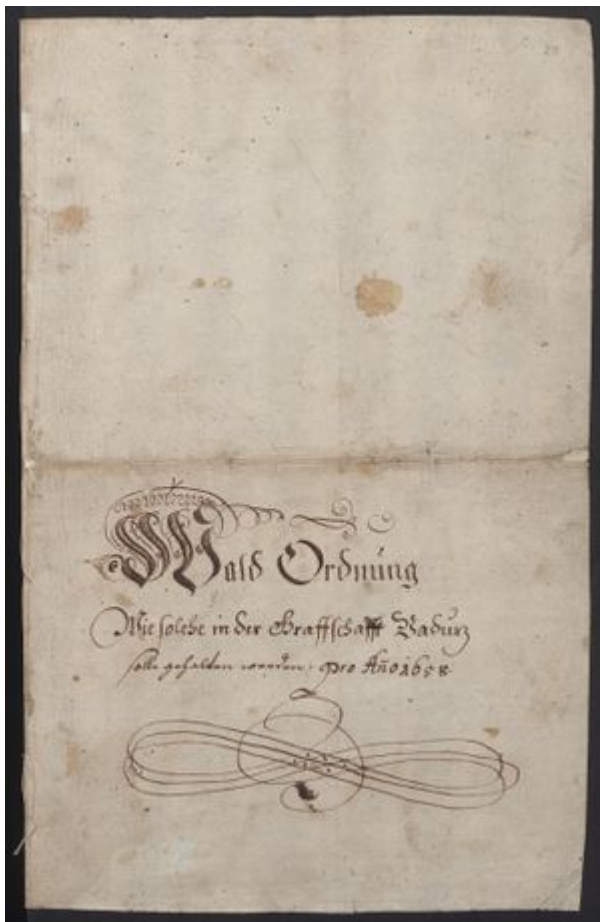 Wald Ordnung
Wie solche in der Graffschafft Vaduz
solle gehalten werden. pro Año 1658